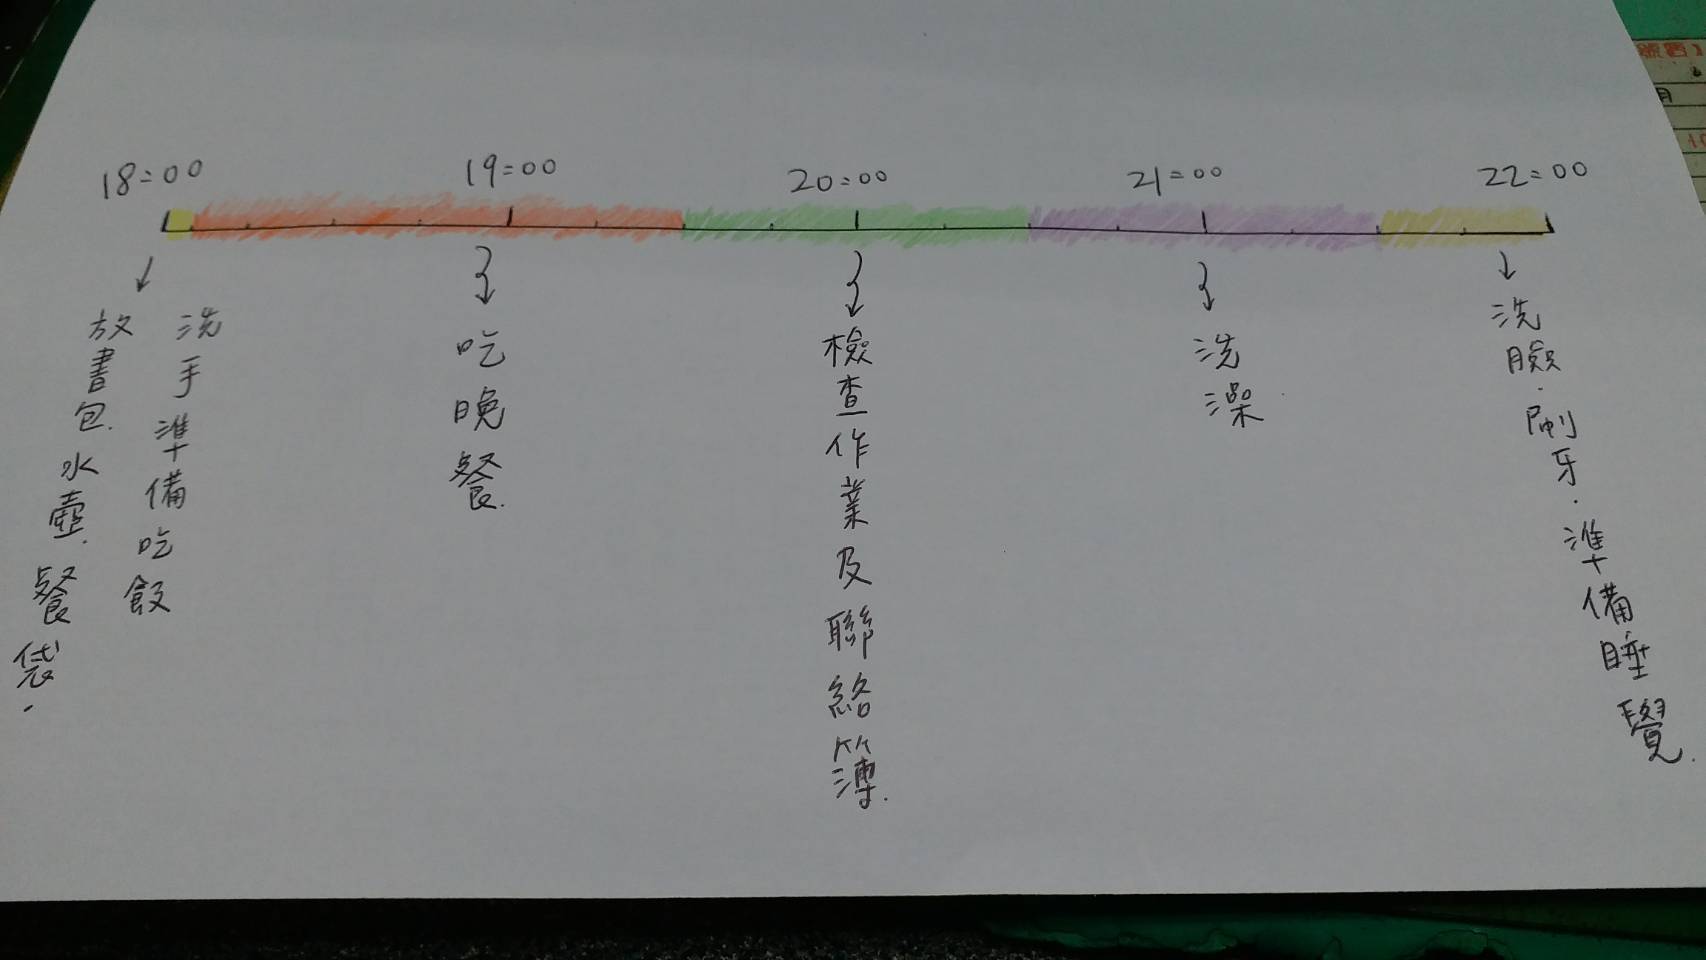 18:00
19:00
20:00
21:00
22:00
放書包.水壺.餐袋.
洗手準備吃飯
吃晚餐.
檢查作業及聯絡簿.
洗澡
洗臉.刷牙.準備睡覺.
號四】
月